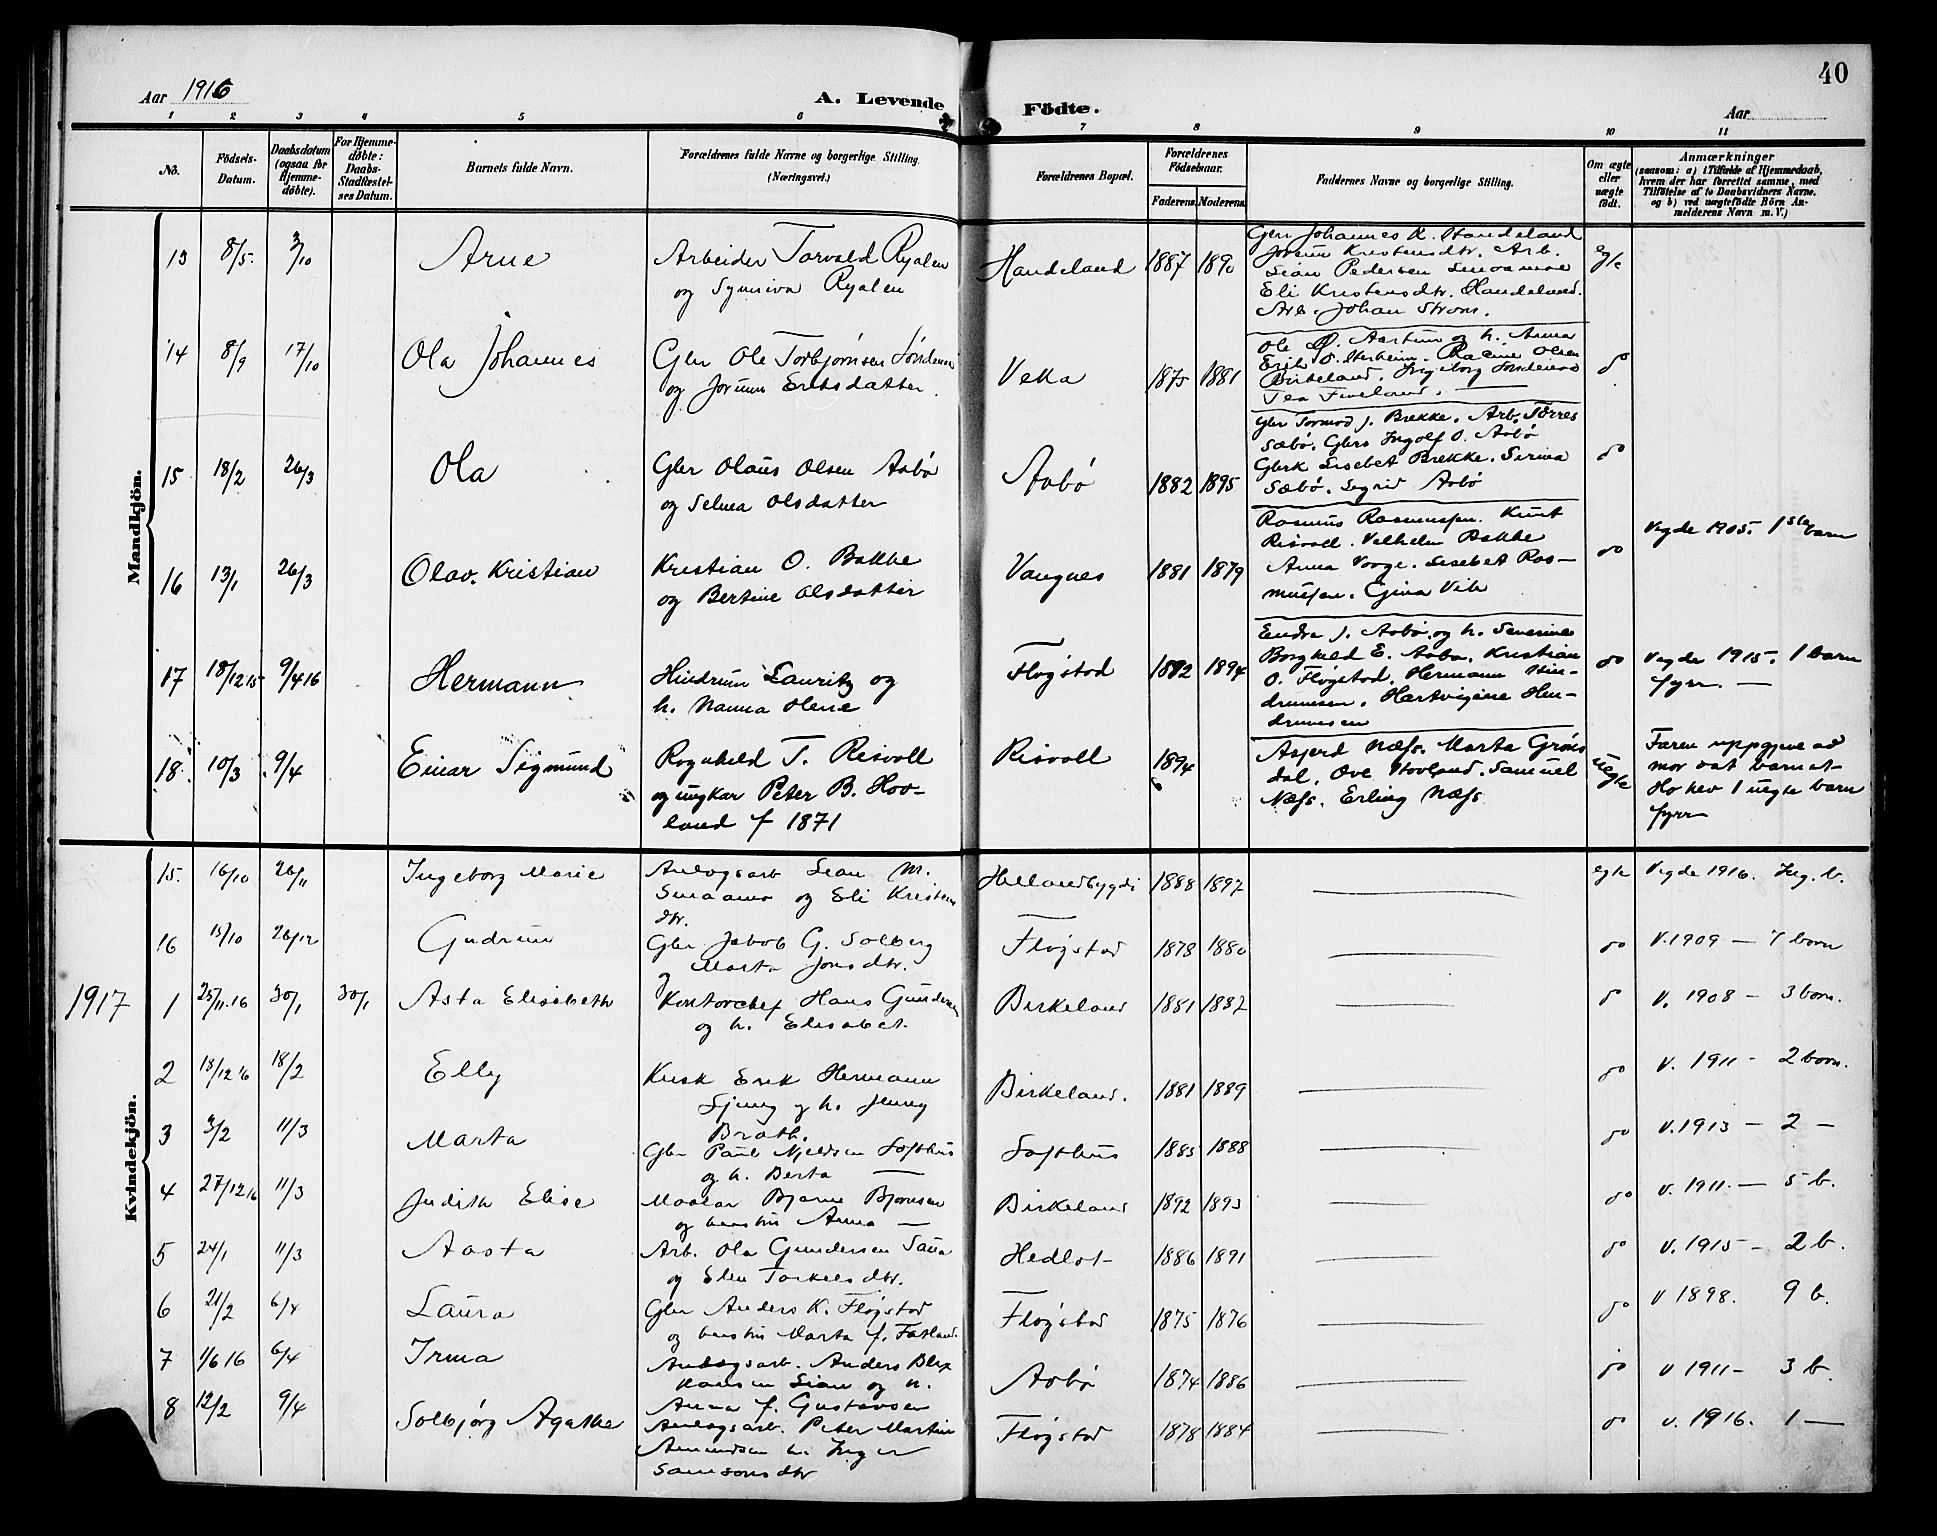 40
Aar 1916
A. Levende Födte.
Aar
1 2 3 4 5 6 7 8 9 10 11
No.
Födsels-Datum.
Daabsdatum (ogsaa for Hjemme-döbte).
For Hjemme-døbte: Daabs-Stadfæstel-ses Datum.
Barnets fulde Navn.
Forældrenes fulde Navne og borgerlige Stilling.
(Næringsvei.)
Forældrenes Bopæl.
Forældrenes Födselsaar.
Faderens. Moderens.
Faddernes Navne og borgerlige Stilling.
Om ægte eller uægte födt.
Anmærkninger
(saasom: a) i Tilfælde af Hjemmedaab,
hvem der har forrettet samme, med
Tilföielse af to Daabsvidners Navne,
og b) ved uægtefödte Börn An-
melderens Navn m. V.)
Mandkjön.
13 8/5 3/10 Arne
Arbeider Torvald Ryalen
og Synniva Ryalen
Handeland 1887 1890
Gbr Johannes K. Handeland
Jorunn Kristensdtr. Arb.
Sian Pedersen
Eli Kristensdtr. Handeland.
Arb. Johan Strøm.
egte
14 8/9 17/10 Ola Johannes
Gbr Ole Torbjørnsen
og Jorunn Eriksdatter.
Veka 1875 1881
og h. Anna
Olsen
Birkeland. Ingeborg
do
15 18/2 26/3 Ola
Gbr Olaus Olsen Aabø
og Selma Olsdatter
Aabø 1882 1895
Gbr Tormod J. Brekke. Arb. Tørres
Sæbø. Gbrs Ingolf O. Aabø
Gbrk Lisebet Brekke. Serina
Sæbø. Sigrid Aabø
do
16 13/1 26/3 Olav Kristian
Kristian O. Bakke
og Bertine Olsdatter
Vangnes 1881 1879
Rasmus Rasmussen. Knut
Risvoll. Vilhelm Bakke
Anna Vorge. Lisebet Ras-
mussen. Gina Vik
do
Vigde 1905. 1ste barn
17 18/12 15 9/4 16 Hermann
Hindrum Lauritz og
h. Nanna Olene
Fløgstad 1892 1894
Endre J. Aabø og h. Severine
Borghild E. Aabø. Kristian
O. Fløgstad. Hermann Hin-
drumsen. Hartvigine Hin-
drumsen
do
Vigde 1915. 1 barn
fyrr. —
18 10/3 9/4 Einar Sigmund
Rognhild T. Risvoll
og ungkar Peter B. Hov-
land f 1871
Risvoll 1894
Asjerd Næss. Marta Grøns
dal. Ove Hovland. Samuel
Næss. Erling Næss
uegte
Faren uppgjeve av
mor åt barnet
Ho hev 1 uegte barn
fyrr
Kvindekjön.
15. 16/10 26/11 Ingeborg Marie
Anlegsarb Sian M.
Smaamo og Eli Kristens
dtr.
Hellandsbygdi 1888 1897 — egte Vigde 1916. Ing. b.
16 15/10 26/12 Gudrun
Gbr Jakob G. Solberg
og Marta Jonsdtr.
Fløgstad 1878 1880 — do V. 1909 — 7 born
1917
1 25/11.16 30/1 30/1 Asta Elisabeth
Kontorchef Hans Gundersen
og h. Elisabet.
Birkeland 1881 1882 — do V. 1908 — 3 born.
2 13/12 16 18/2 Elly
Kusk Erik Hermann
Ljung og h. Jenny
Brath.
Birkeland. 1881 1889 — do V. 1911 - 2 born.
3 3/2 11/3 Marta
Gbr Paul Njeldsen Softhus
og h. Berta —
Softhus 1885 1888 — do V. 1913 — 2 —
4 27/12 16 11/3 Judith Elise
Maalar Bjarne Bjørnsen
og henstru Anna —
Birkeland 1892 1893 — do V. 1911. — 5 b.
5 24/1 11/3 Aasta
Arb. Ola Gundersen Saua
og Elen Torkelsdtr.
Hedlot 1886 1891 — do V. 1915 — 2 b.
6 21/2 6/4 Laura
Gbr Anders K. Fløgstad
og henstru Marta f. Fatland.
Fløgstad 1875 1876 — do V 1898. 9 b.
7 1/6 16 6/4 Irma
Anlegsarb. Anders Blix
Hansen Sian og h.
Anna f. Gustavsen
Aabø 1874 1886 — do V 1911 — 3 b.
8 12/2 9/4 Solbjørg Agathe
Anlegsarb. Peter Martin
Amundsen h. Inger
Samsonsdtr
Fløgstad 1878 1884 — do V. 1916. 1 —